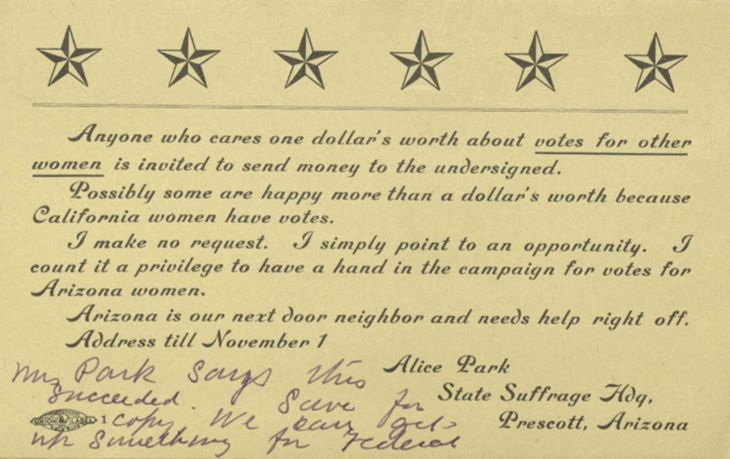 Anyone who cares one dollar's worth about votes for other
women is invited to send money to the undersigned.
Possibly some are happy more than a dollar's worth because
California women have votes.
I make no request. I simply point to an opportunity. I
count it a privilege to have a hand in the campaign for votes for
Arizona women.
Arizona is our next door neighbor and needs help right off.
Address till November 1
Alice Park
State Suffrage Hdq,
Prescott, Arizona
Mrs Park says this
succeeded. Save for
1 copy. We can get
up something for Federal